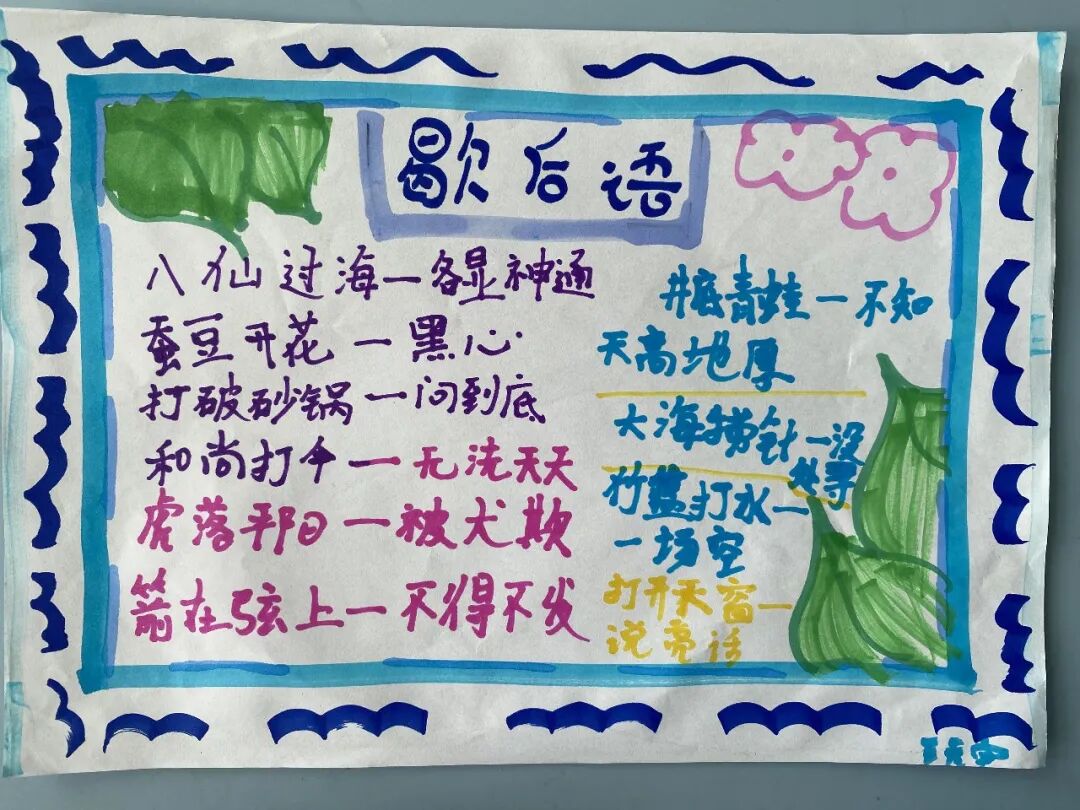 歇后语
八仙过海一各显神通
蚕豆开花一黑心
打破砂锅一问到底
和尚打伞一无法天天
虎落平日一被犬欺
箭在弦上一不得不发
井底青蛙一不知
天高地厚
大海捞针一没
处寻
竹蓝打水一
一场空
打开天窗一
说亮话